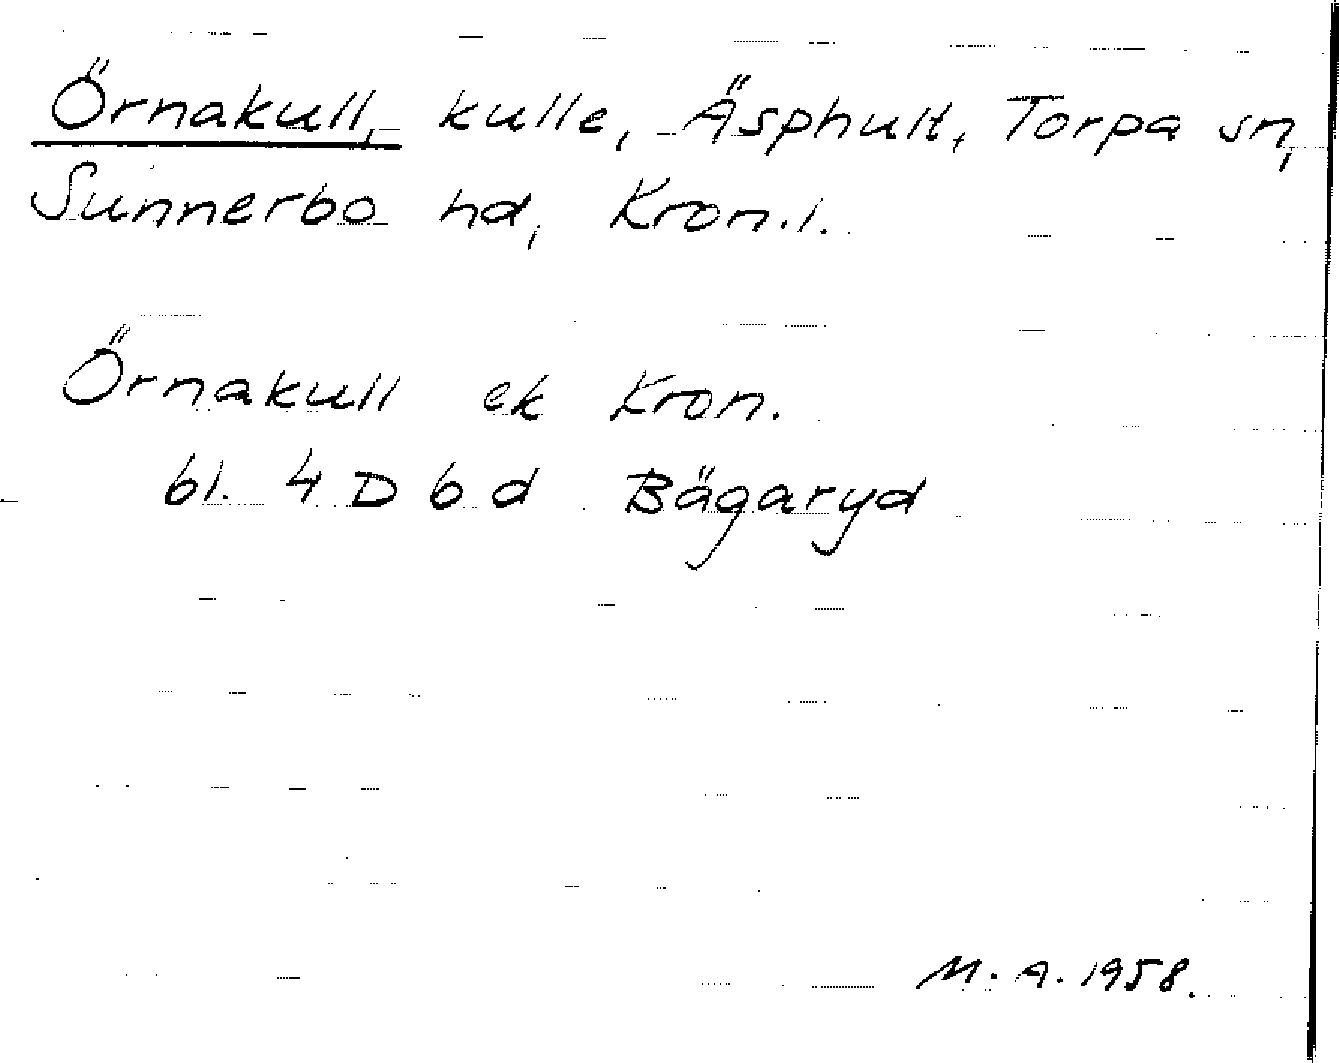 Örnakull, kulle, Äsphult, Torpa sn,
Sunnerbo hd, Kron.l.
Örnakull ek Kron.
bl. 4 D 6 d Bägaryd
M. A. 1958.